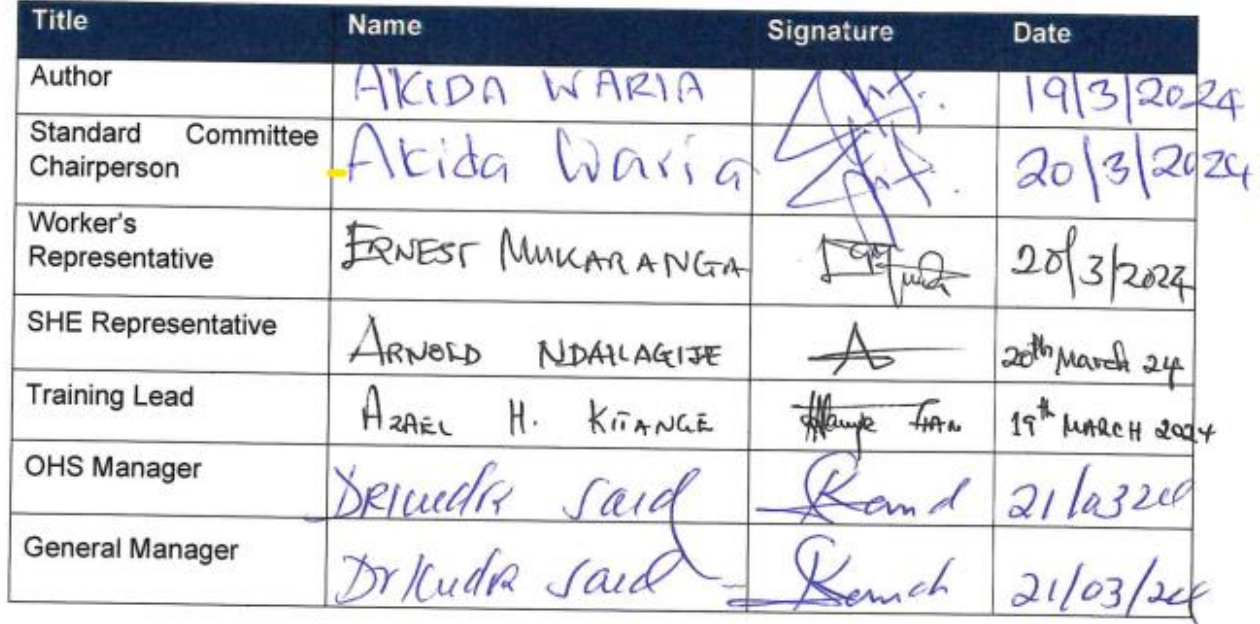 Title Name Signature Date
Author AKIDA WARIA 19/3/2024
Standard Committee Chairperson Akida Waria 20/3/2024
Worker's Representative ERNEST MUKARANGA 20/3/2024
SHE Representative ARNOLD NDAILAGIJE 20th March 24
Training Lead AZAEL H. KITANGE 19th MARCH 2024
OHS Manager Dr Kudra Said
General Manager Dr Kudra Said 21/03/24